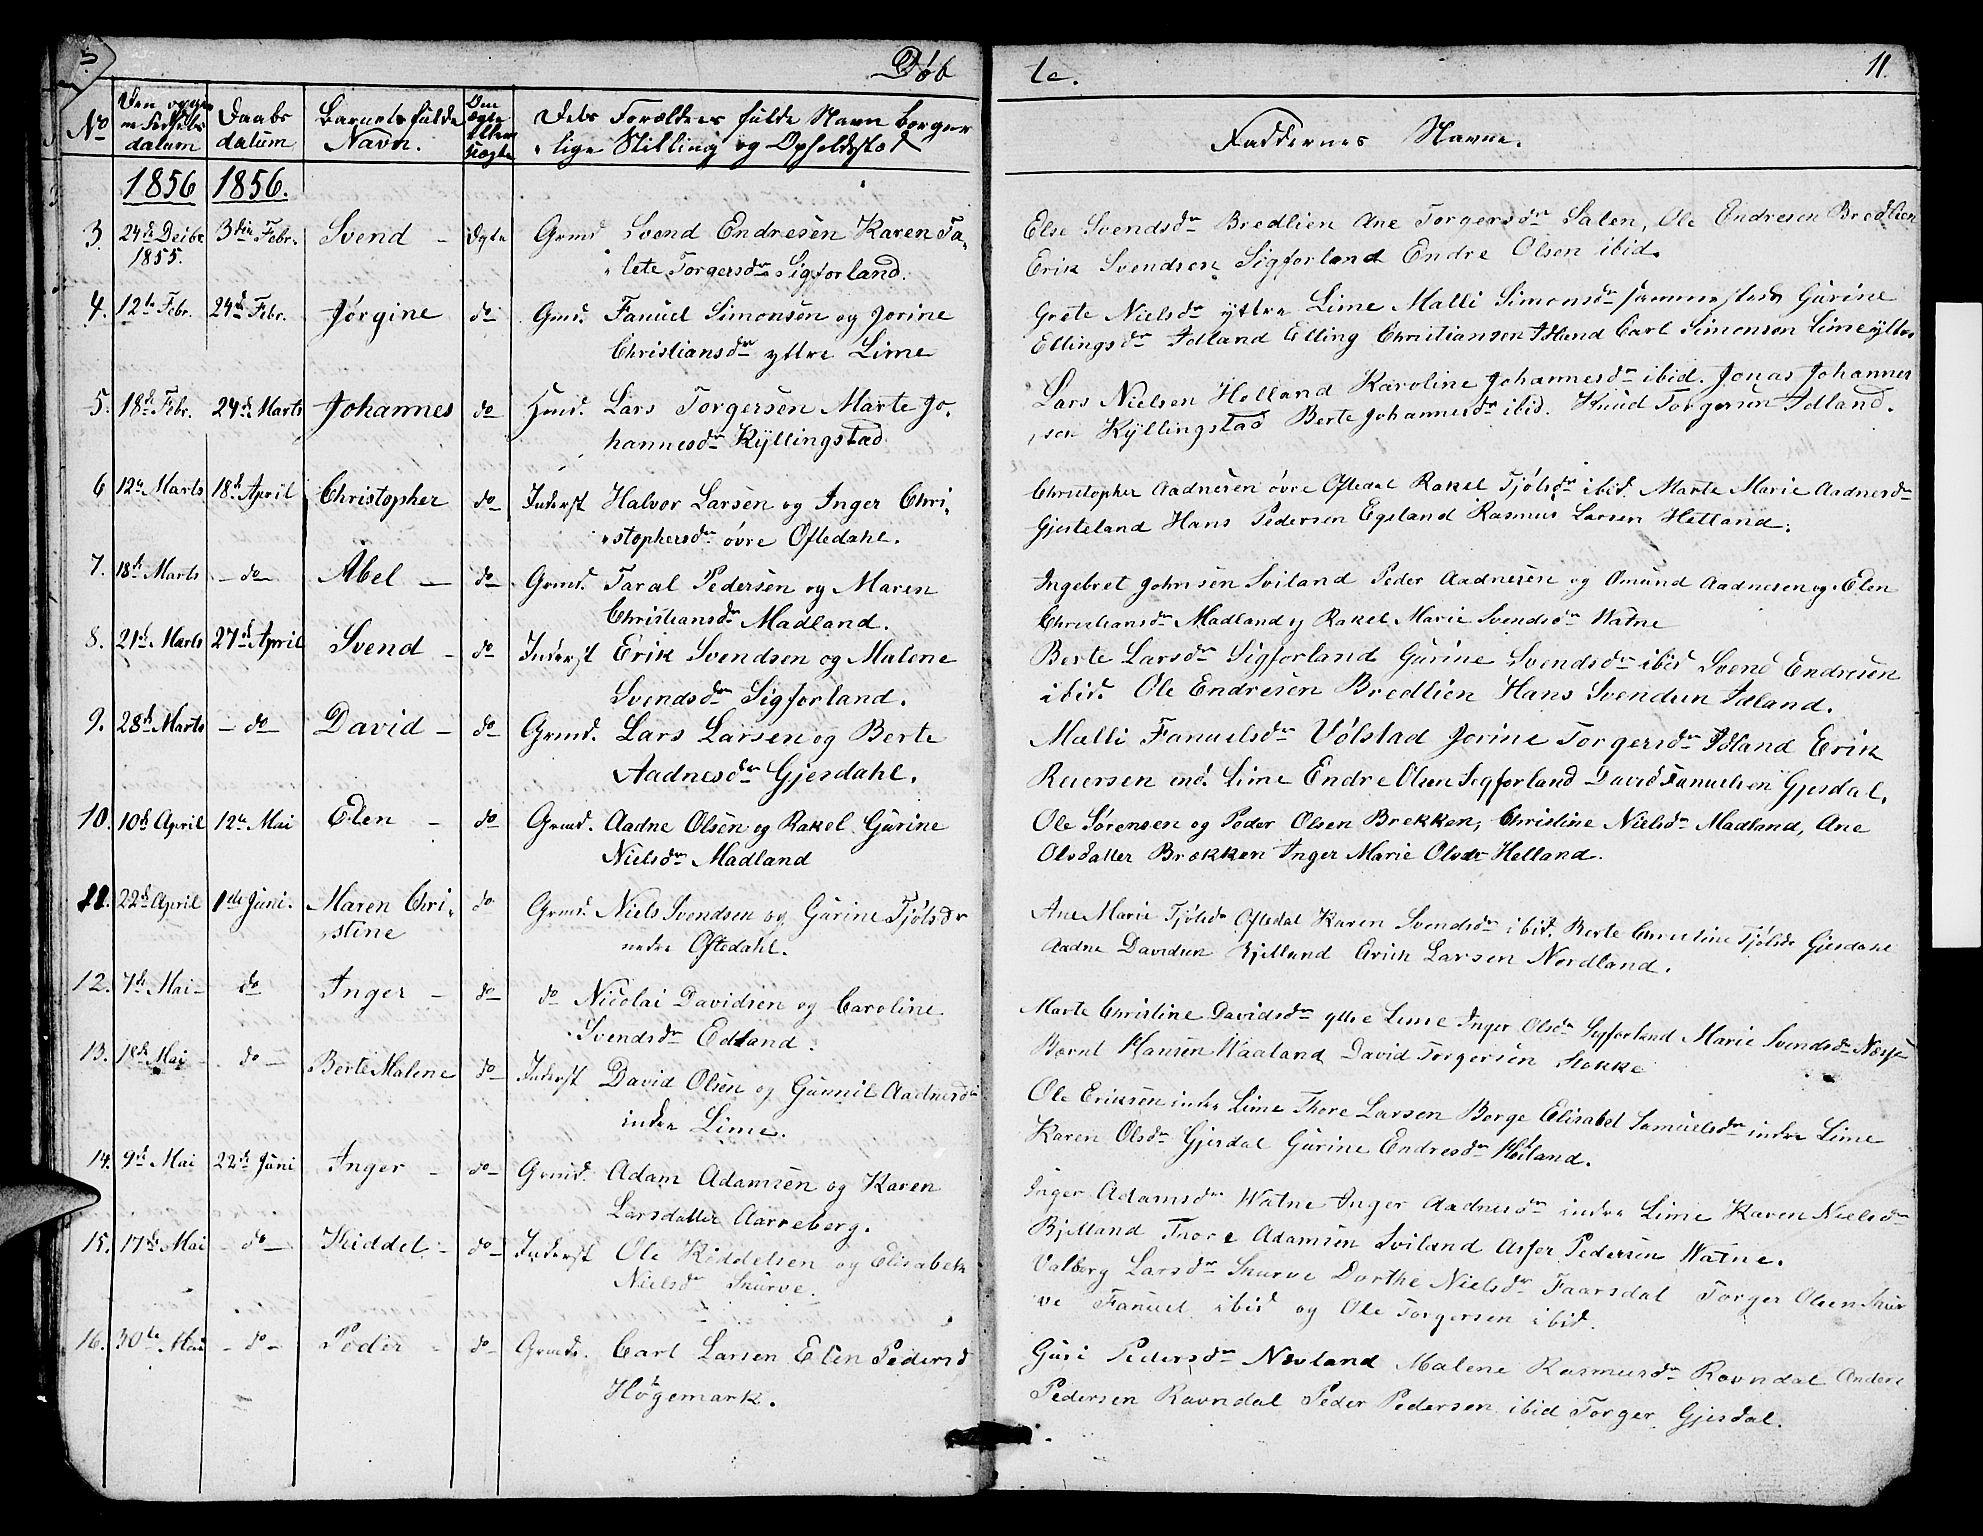 Døb
te.
11.
No
Den og
Fødsels
datum
Daabs
datum
Barnets fulde
Navn.
Om
ægte
eller
uægte
Dets Forældres fulde Navn borger
lige Stilling og Opholdssted
Faddernes Navne.
1856 1856.
3. 24de Decbr 3die Febr. Svend - Ægte Grmd Svend Endresen Karen Ta-
1855. lete Torgersdr Sigforland.
Else Svendsdr Bredlien Ane Torgersdr Salen, Ole Endresen Bredlien
Erik Svendsen Sigforland Endre Olsen ibid.
4. 12te Febr. 24de Febr. Jørgine do Gmd. Fanuel Simonsen og Jorine
Christiansdr yttre Lime
Grete Nielsdr yttre Lime Malli Simonsdr sammesteds Gurine
Ellingsdr Idland Elling Christiansen Idland Carl Simonson Lime yttre
5. 18de Febr. 24de Marts Johannes do Hmd. Lars Torgersen Marte Jo-
hannesdr Kyllingstad
Lars Nielsen Helland Karoline Johannesdr ibid. Jonas Johannes
sen Kyllingstad Berte Johannesdr ibid. Knud Torgersen Idland.
6 12te Marts 18de April Christopher do Inderst Halvor Larsen og Inger Chri-
stophersdr øvre Oftedahl.
Christopher Aadnesen øvre Oftedal Rakel Tjølsdr ibid. Marte Marie Aadnesdr
Gjesteland Hans Pedersen Egeland Rasmus Larsen Hetland.
7. 18de Marts - do - Abel - do Grmd. Taral Pedersen og Maren
Christiansdr Madland.
Ingebret Johnsen Sviland Peder Aadnesen og Omund Aadnesen og Elen
Christiansdr Madland og Rakel Marie Svendsdr Watne
8. 21de Marts 27de April Svend - do Inderst Erik Svendsen og Malene
Svendsdr Sigforland.
Berte Larsdr Sigforland Gurine Svendsdr ibid Svend Endresen
ibid. Ole Endresen Bredlien Hans Svendsen Idland.
9. 28de Marts - do David - do Grmd. Lars Larsen og Berte
Aadnesdr Gjesdahl.
Malli Fanuelsdr Vølstad Jorine Torgersdr Idland Erik
Reiersen ind. Lime Endre Olsen Sigforland David Fanuelsen Gjesdal.
10. 10de April 12te Mai Elen - do Grmd. Aadne Olsen og Rakel Gurine
Nielsdr Madland
Ole Sørensen og Peder Olsen Brekken, Christine Nielsdr Madland, Ane
Olsdatter Brækken Inger Marie Olsdr Helland.
11. 22de April 1ste Juni. Maren Chri- do Grmd. Niels Svendsen og Gurine Tjølsdr
stine nedre Oftedahl.
Ane Marie Tjølsdr Oftedal Karen Svendsdr ibid. Berte Christine Tjølsdr Gjesdahl
Aadne Davidsen Bjelland Erik Larsen Nordland.
12. 7de Mai - do Inger - do do Nicolai Davidsen og Caroline
Svendsdr Edland.
Marte Christine Davidsdr yttre Lime Inger Olsdr Sigforland Marie Svendsdr
Bernt Hansen Waaland David Torgersen Stokke
13. Mai - do - Berte Malene do Inderst David Olsen og Gunnil Aadnesdr
indre Lime.
Ole Eriksen indre Lime Thore Larsen Borge Elisabet Samuelsdr indre Lime
Karen Olsdr Gjesdal Gurine Endresdr Høiland.
14. 9de Mai 22de Juni Inger - do Grmd. Adam Adamsen og Karen
Larsdatter Aarreberg.
Inger Adamsdr Watne Inger Aadnesdr indre Lime Karen Nielsdr
Bjelland Thore Adamsen Sviland Asser Pedersen Watne.
15. 17de Mai - do - Kiddel - do Inderst Ole Kiddelsen og Elisabeth
Nielsdr Skurve.
Valborg Larsdr Skurve Dorthe Nielsdr Faarsdal Torger Olsen Skur
ve Fanuel ibid og Ole Torgersen ibid.
16. 30te Mai - do - Peder - do Grmd. Carl Larsen Elen Pedersd
Høgemark.
Guri Pedersdr Nevland Malene Rasmusdr Ravndal Anders
Pedersen Ravndal Peder Pedersen ibid Torger Gjesdal.